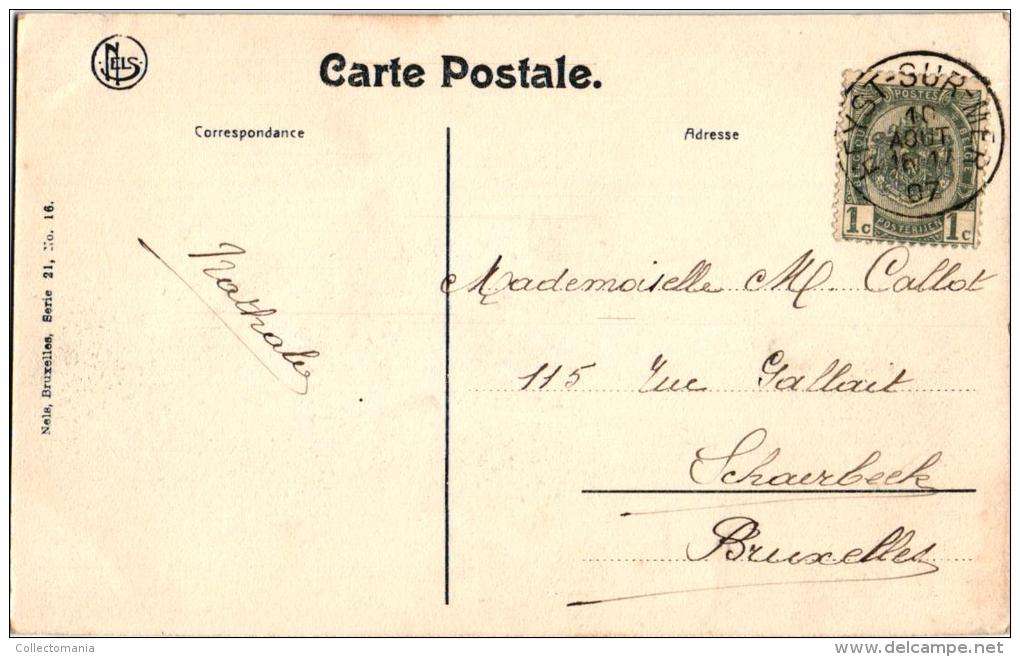 NELS
Carte Postale.
Correspondance
Adresse
HEYST-SUR-MER
10
AOUT
16-17
07
POSTES
1c 1c
POSTERIJEN
Nels, Bruxelles, Serie 21, No. 16.
Nathalie
Mademoiselle M. Callot
115 rue Gallait
Schaerbeek
Bruxelles
Collectomania
www.delcampe.net